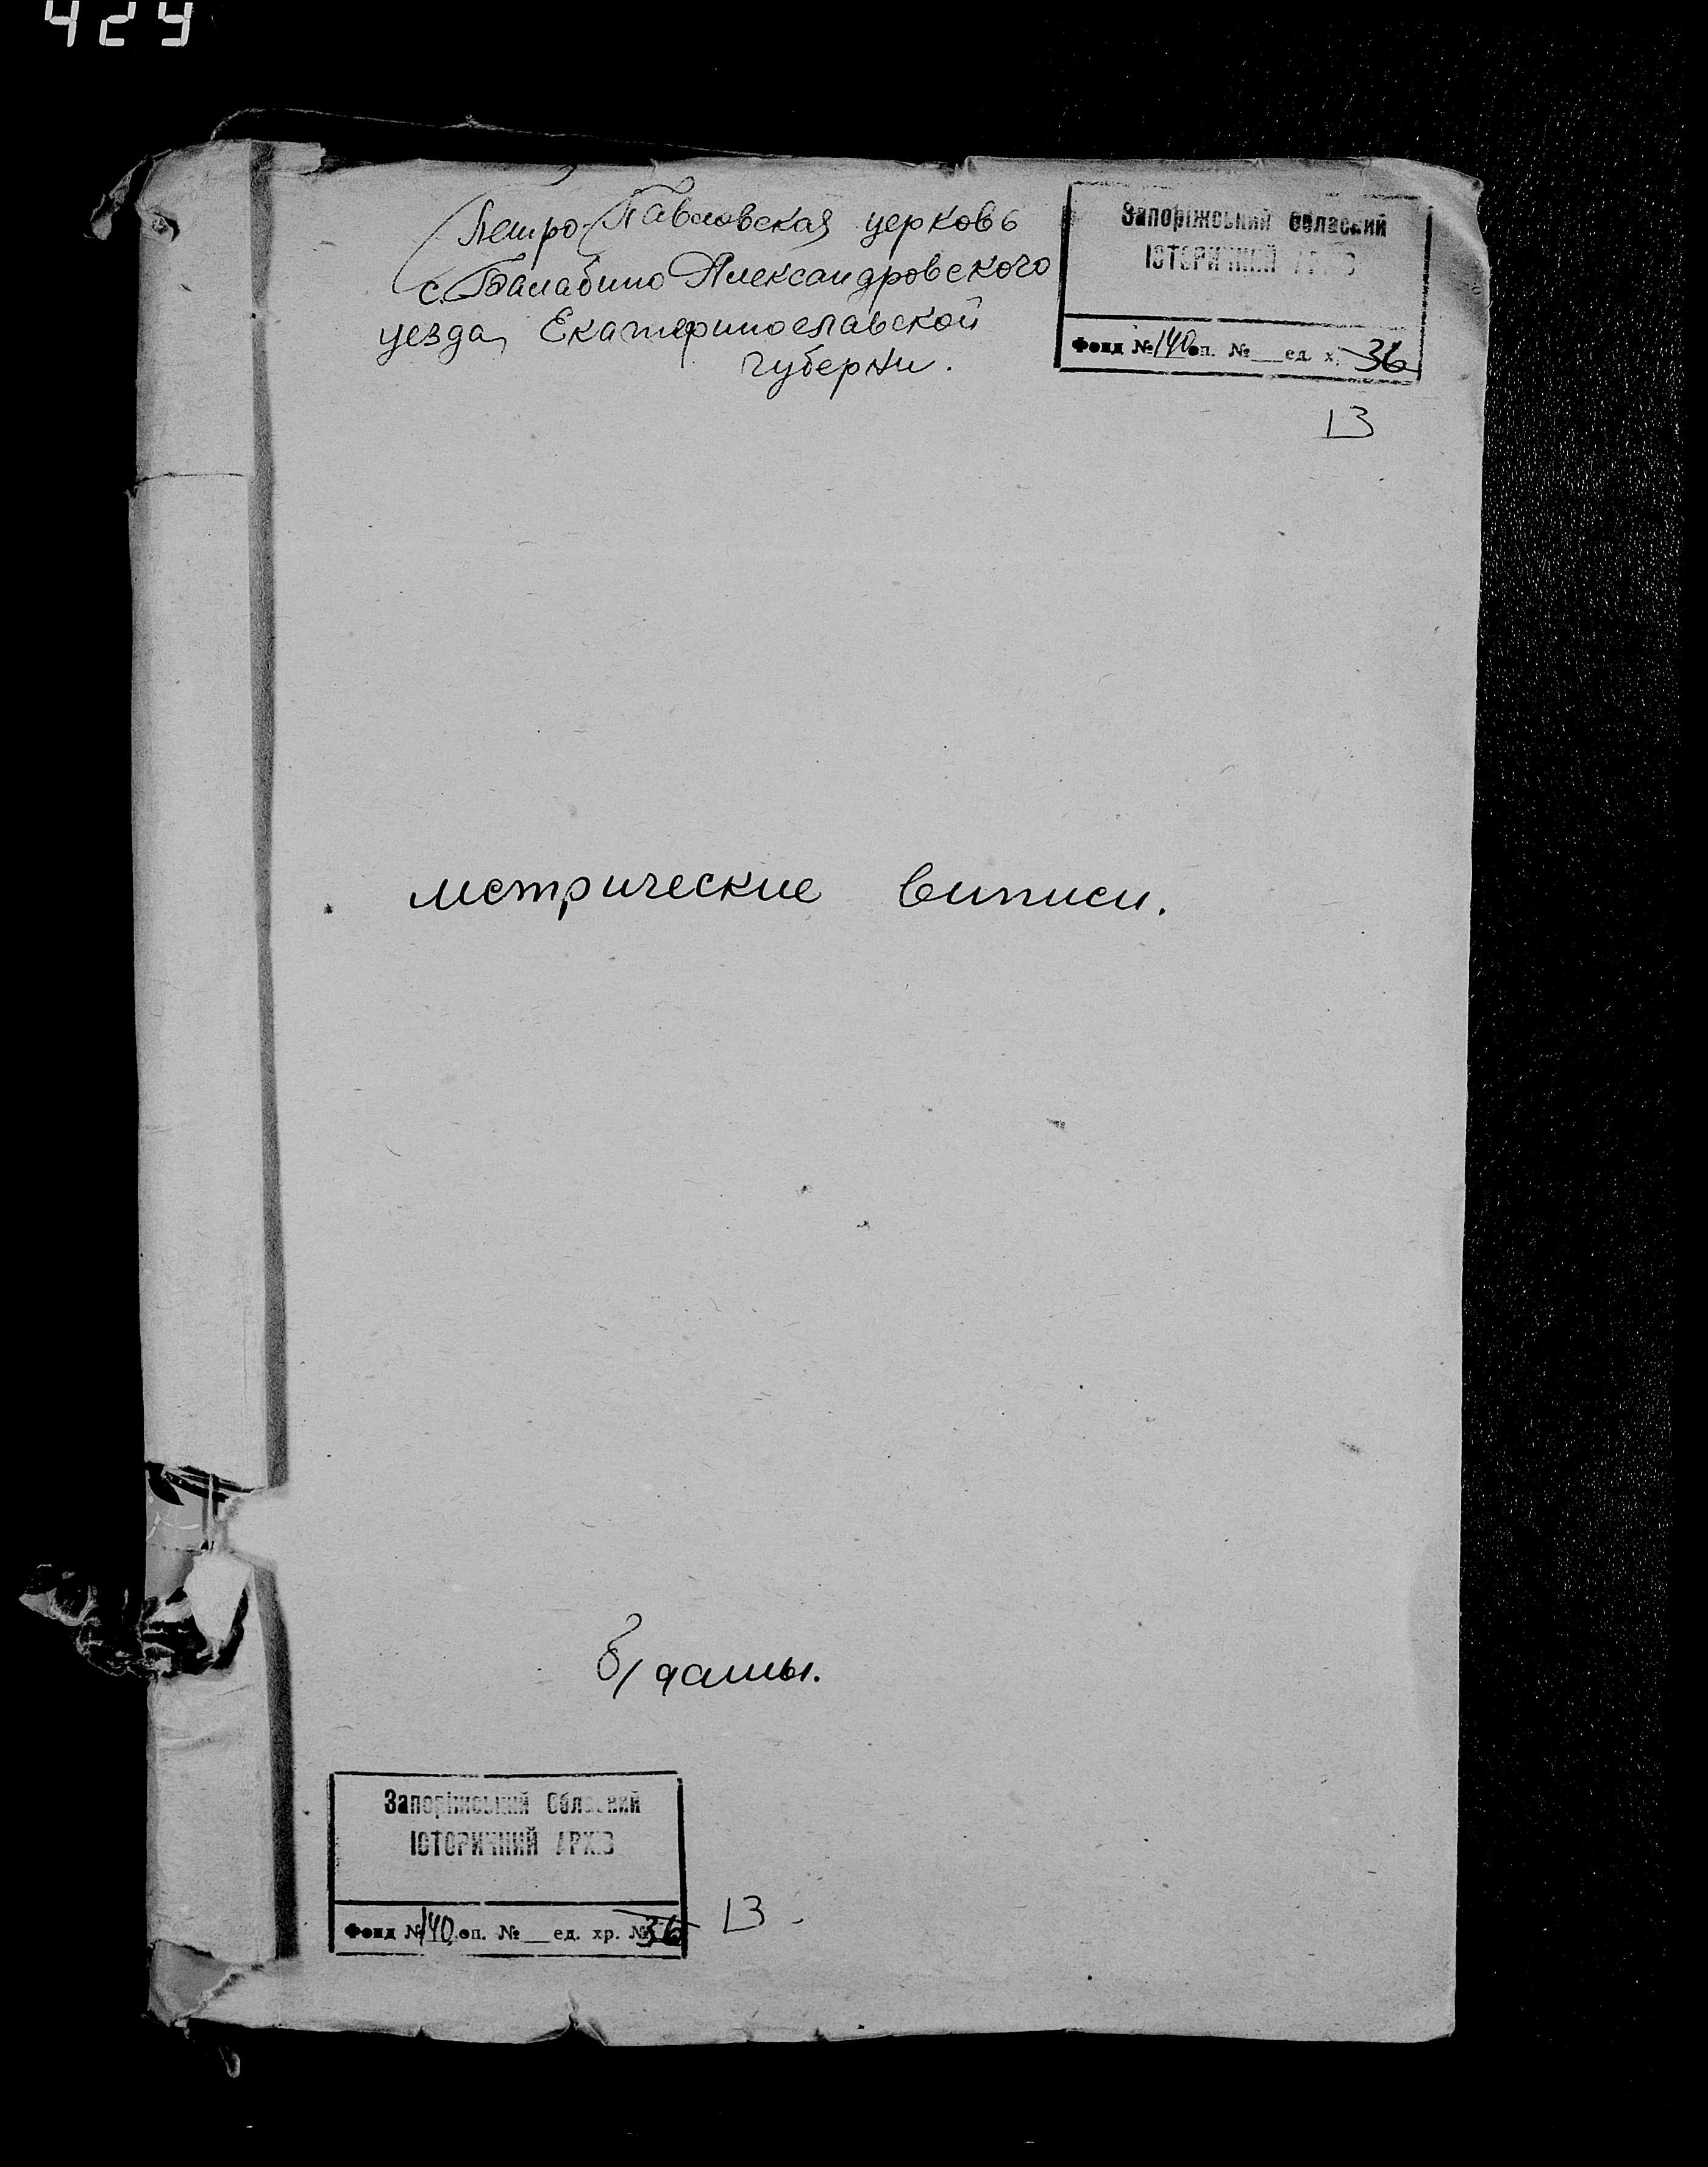 429
Петро-Павловская церковь
с. Балабино Александровского
уезда, Екатеринославской
губерни.
Запоріжський Обласний
ІСТОРИЧНИЙ АРХІВ
Фонд № 140 оп. № __ ед. х. 36
13
метрические виписи.
б/даты.
Запоріжський Обласний
ІСТОРИЧНИЙ АРХІВ
Фонд № 140 оп. № __ ед. хр. № 36
13